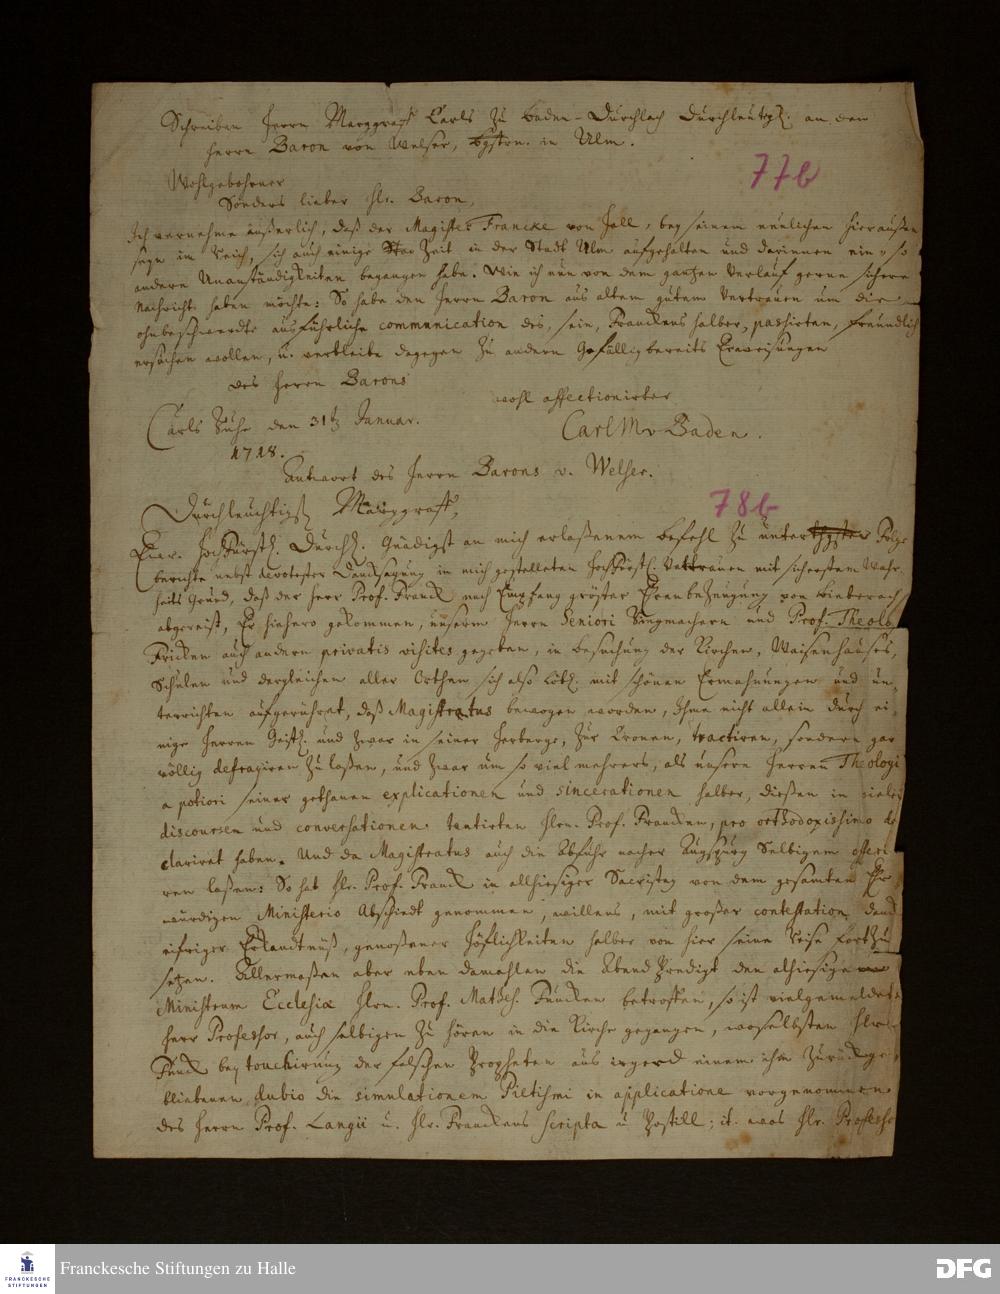 Schreiben Herrn Marggraff Carls zu Baden-Durchlach Durchleucht. an den
Herrn Baron von Welser, in Ulm.
77b
Wohlgebohrner
Sonders lieber Hr. Baron,
Ich vernehme äußerlich, daß der Magister Francke von Hall, bey seinem neulichen hieraußen
seyn im Reich, sich auch einige Zeit in der Stadt Ulm aufgehalten und darinnen ein, u. so
andere Unanständigkeiten begangen habe. Wie ich nun von dem gantzen Verlauf gerne sichere
Nachricht haben möchte: So habe den Herrn Baron aus altem gutem Vertrauen um die
ohnbeschwerdte ausführliche communication des, sein, Franckens halber, passirten, freundlich
ersuchen wollen, u. verbleibe dagegen zu andern Gefälligbereits Erweisungen
des Herrn Barons
wohl affectionirter
Carls Ruhe den 31t Januar.
1718.
Carl M v Baden.
Antwort des Herrn Barons v. Welser.
Durchleuchtigst Marggraff,
78b
Euer. Hochfürstl. Durchl. Gnädigst an mich erlaßenem Befehl zu Folge
berichte nebst devotester Dancksagung in mich gestelleten Hochfürstl. Vertrauen mit sicherstem Wahr-
heits Grund, daß der Herr Prof. Franck nach Empfang gröster Ehrenbezeugung von Bieberach
abgereist, Er hiehero gekommen, unserm Herrn Seniori und Prof. Theolo.
Fricken auch andern privatis visites gegeben, in besuchung der Kirchen, Waisenhauses,
Schulen und dergleichen aller Orthen sich also löbl. mit schönen Ermahnungen und un-
terrichten aufgeführet, daß Magistratus bewogen worden, Ihme nicht allein durch ei-
nige Herren Geistl. und zwar in seiner Herberge, zur Cronen, tractiren, sondern gar
völlig defrayiren zu laßen, und zwar um so viel mehrers, als unsere Herren Theologi
a potiori seiner gethanen explicationen und sincerationen halber, dießen in vielen
discoursen und conversationen tentirten Hrn. Prof. Francken, pro orthodoxissimo de-
clariret haben. Und da Magistratus auch die Abfuhr nacher Augspurg Selbigem offeri-
ren laßen: So hat Hr. Prof. Franck in allhiesiger Sacristey von dem gesamten Ehr
würdigen Ministerio Abschiedt genommen, willens, mit großer contestation danck
eifriger Erkandtnüß, genoßener Höflichkeiten halber von hier seine Reise fortzu
setzen. Allermaßen aber eben damahlen die Abend Predigt den alhiesigen
Ministrum Ecclesiæ Hrn. Prof. Matthes. Funcken betroffen, so ist vielgemeldete
Herr Professor, auch selbigen zu hören in die Kirche gegangen, woselbsten Herr
Funck bey touchirung der falschen Propheten aus irgend einem ihm zurückge-
bliebenen dubio die simulationem Pietismi in applicatione vorgenommen
des Herrn Prof. Langii u. Hr. Franckens scripta u Postill; it. was Hr. Professo
Franckesche Stiftungen zu Halle
FRANCKESCHE
STIFTUNGEN
DFG